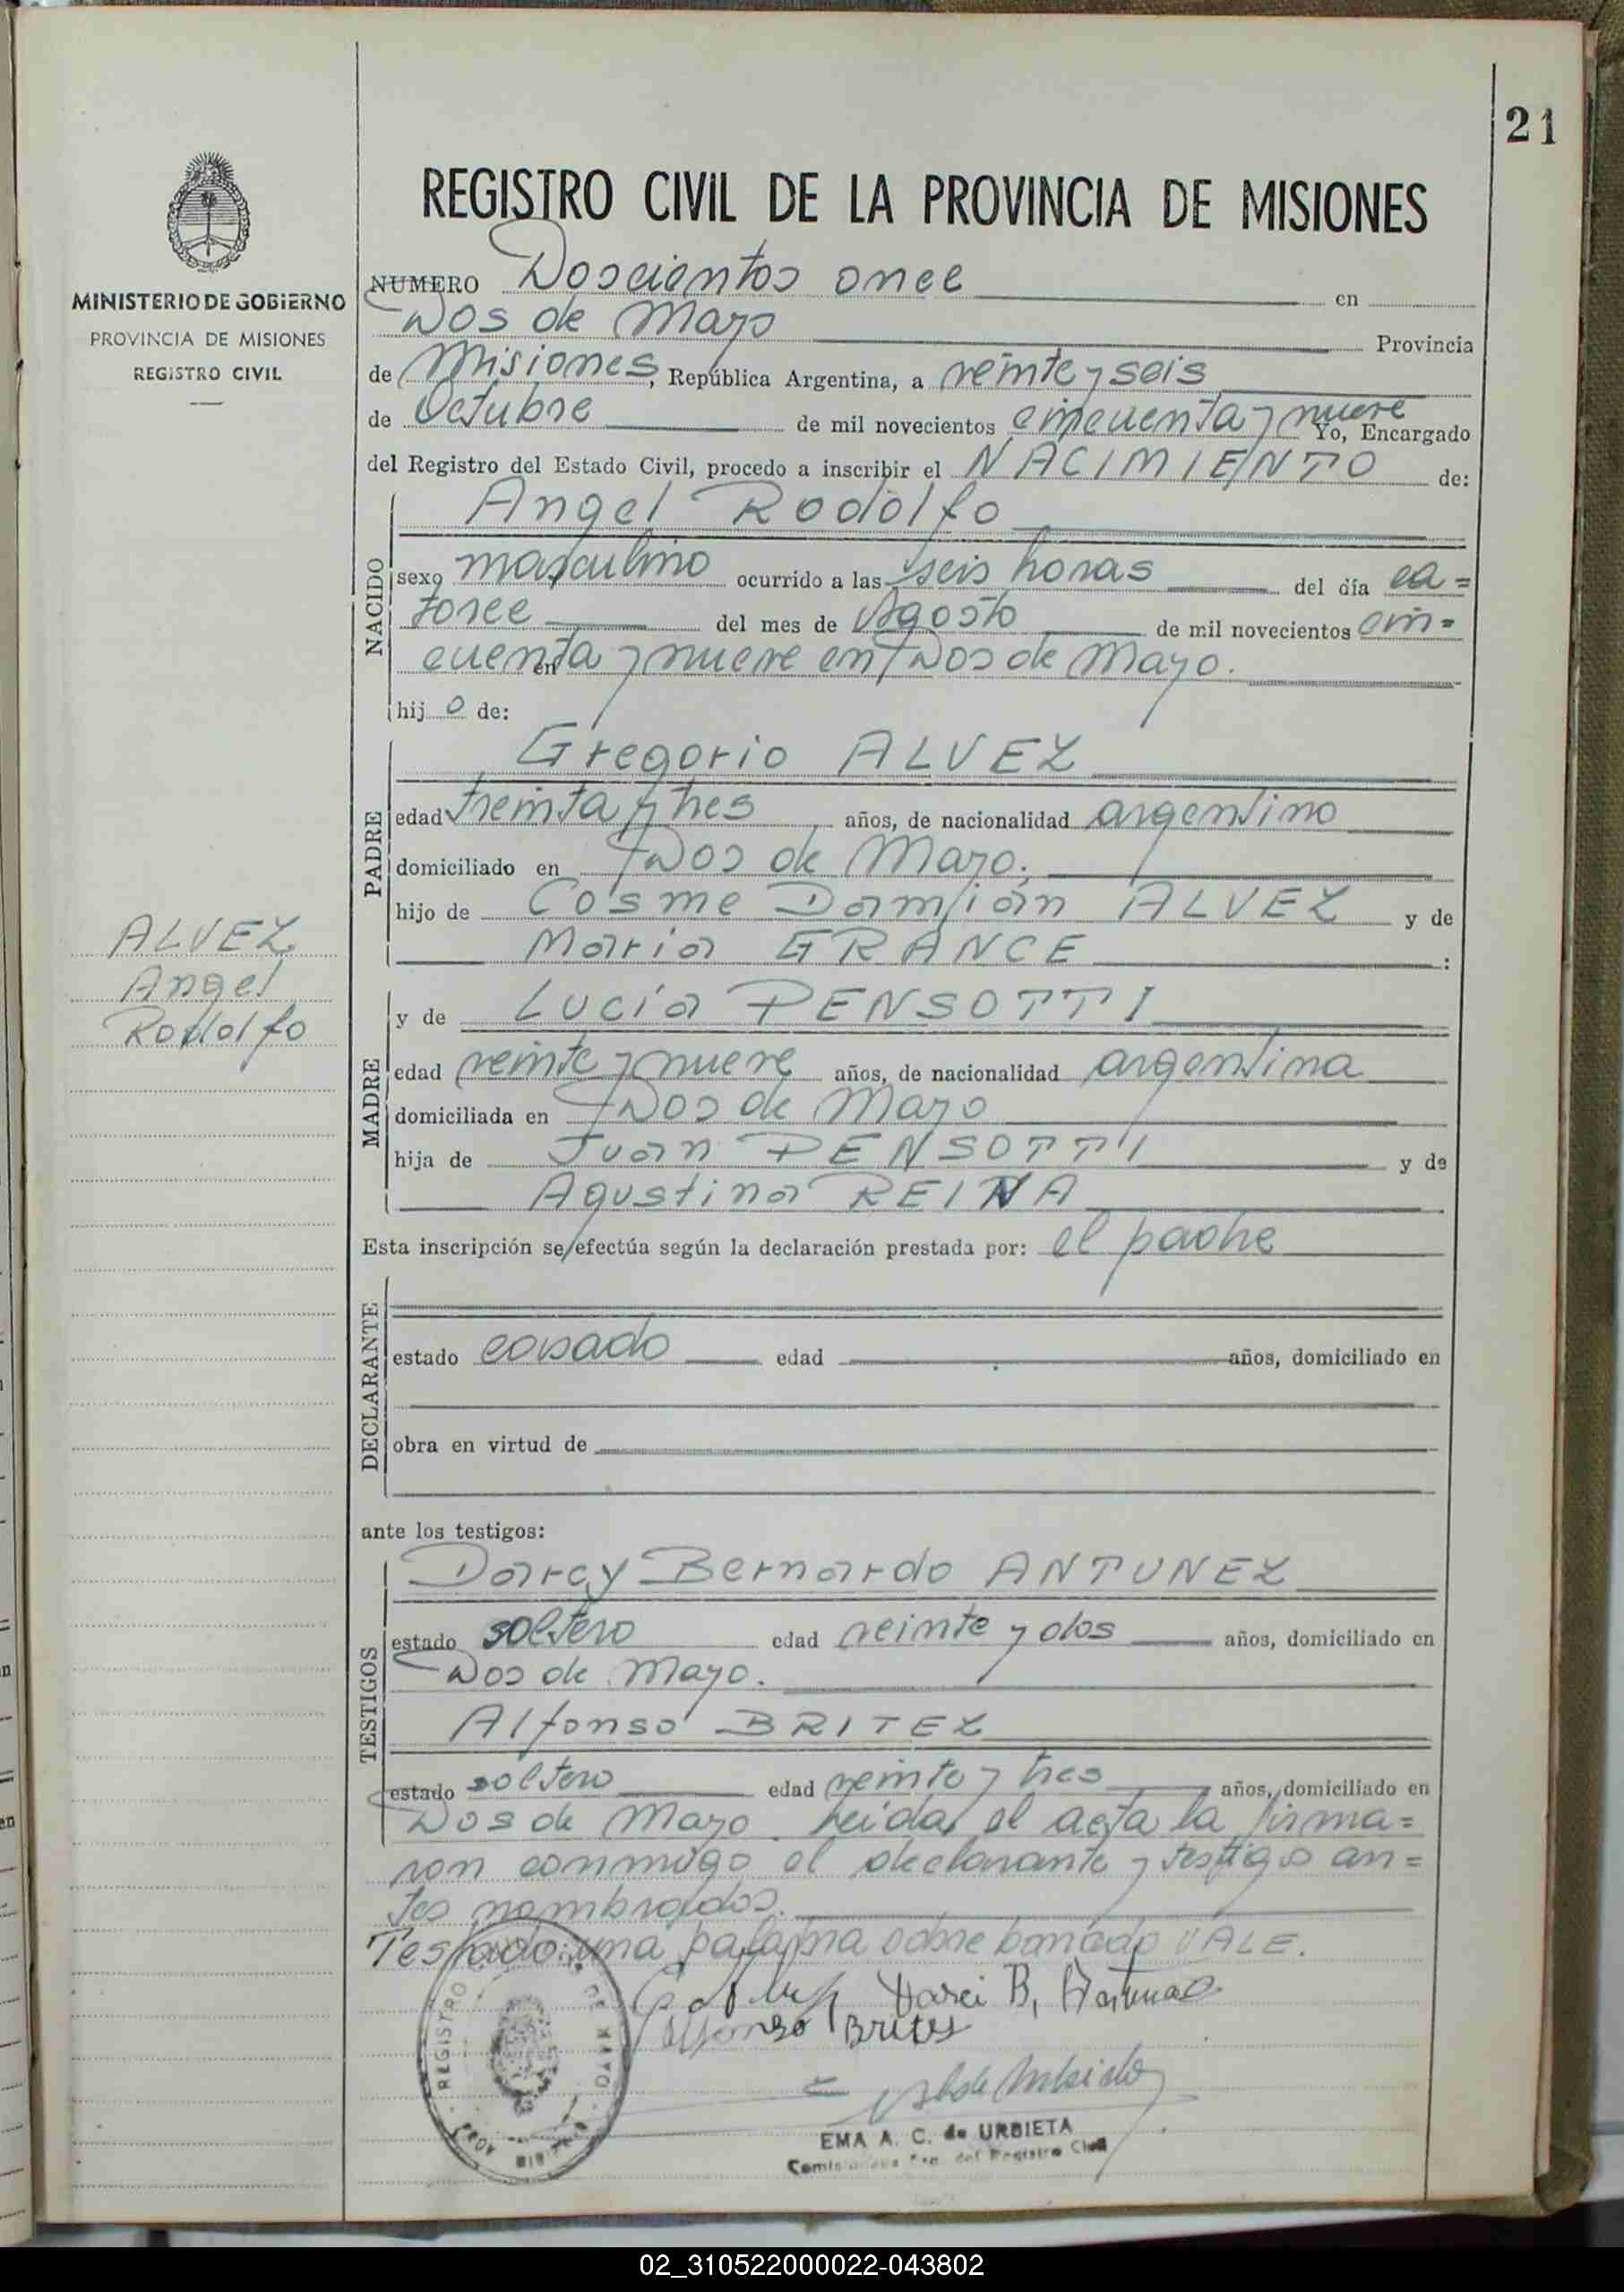 21
REGISTRO CIVIL DE LA PROVINCIA DE MISIONES
MINISTERIO DE GOBIERNO
PROVINCIA DE MISIONES
REGISTRO CIVIL
NUMERO Doscientos once en
Dos de Mayo Provincia
de Misiones, República Argentina, a veinte y seis
de Octubre de mil novecientos cincuenta y nueve Yo, Encargado
del Registro del Estado Civil, procedo a inscribir el NACIMIENTO de:
NACIDO
Angel Rodolfo
sexo masculino ocurrido a las seis horas del día ca=
torce del mes de Agosto de mil novecientos cin=
cuenta y nueve en Dos de Mayo.
en
hijo de:
PADRE
Gregorio ALVEZ
edad treinta y tres años, de nacionalidad argentino
domiciliado en Dos de Mayo.
hijo de Cosme Damián ALVEZ y de
Maria GRANCE :
ALVEZ
Angel
Rodolfo
MADRE
y de Lucia PENSOTTI
edad veinte y nueve años, de nacionalidad argentina
domiciliada en Dos de Mayo
hija de Juan PENSOTTI y de
Agustina REINA
Esta inscripción se efectúa según la declaración prestada por: el padre
DECLARANTE
estado casado edad años, domiciliado en
obra en virtud de
ante los testigos:
TESTIGOS
Darcy Bernardo ANTUNEZ
estado soltero edad veinte y dos años, domiciliado en
Dos de Mayo.
Alfonso BRITEZ
estado soltero edad veinte y tres años, domiciliado en
Dos de Mayo. Leida el acta la firma=
ron conmigo el declarante y testigos an=
tes nombrados.
Testado: una palabra sobre borrado VALE.
Darci B. Antunez
Alfonso Brites
REGISTRO DE MAYO
EMA A. C. de URBIETA
del Registro Civil
02_310522000022-043802